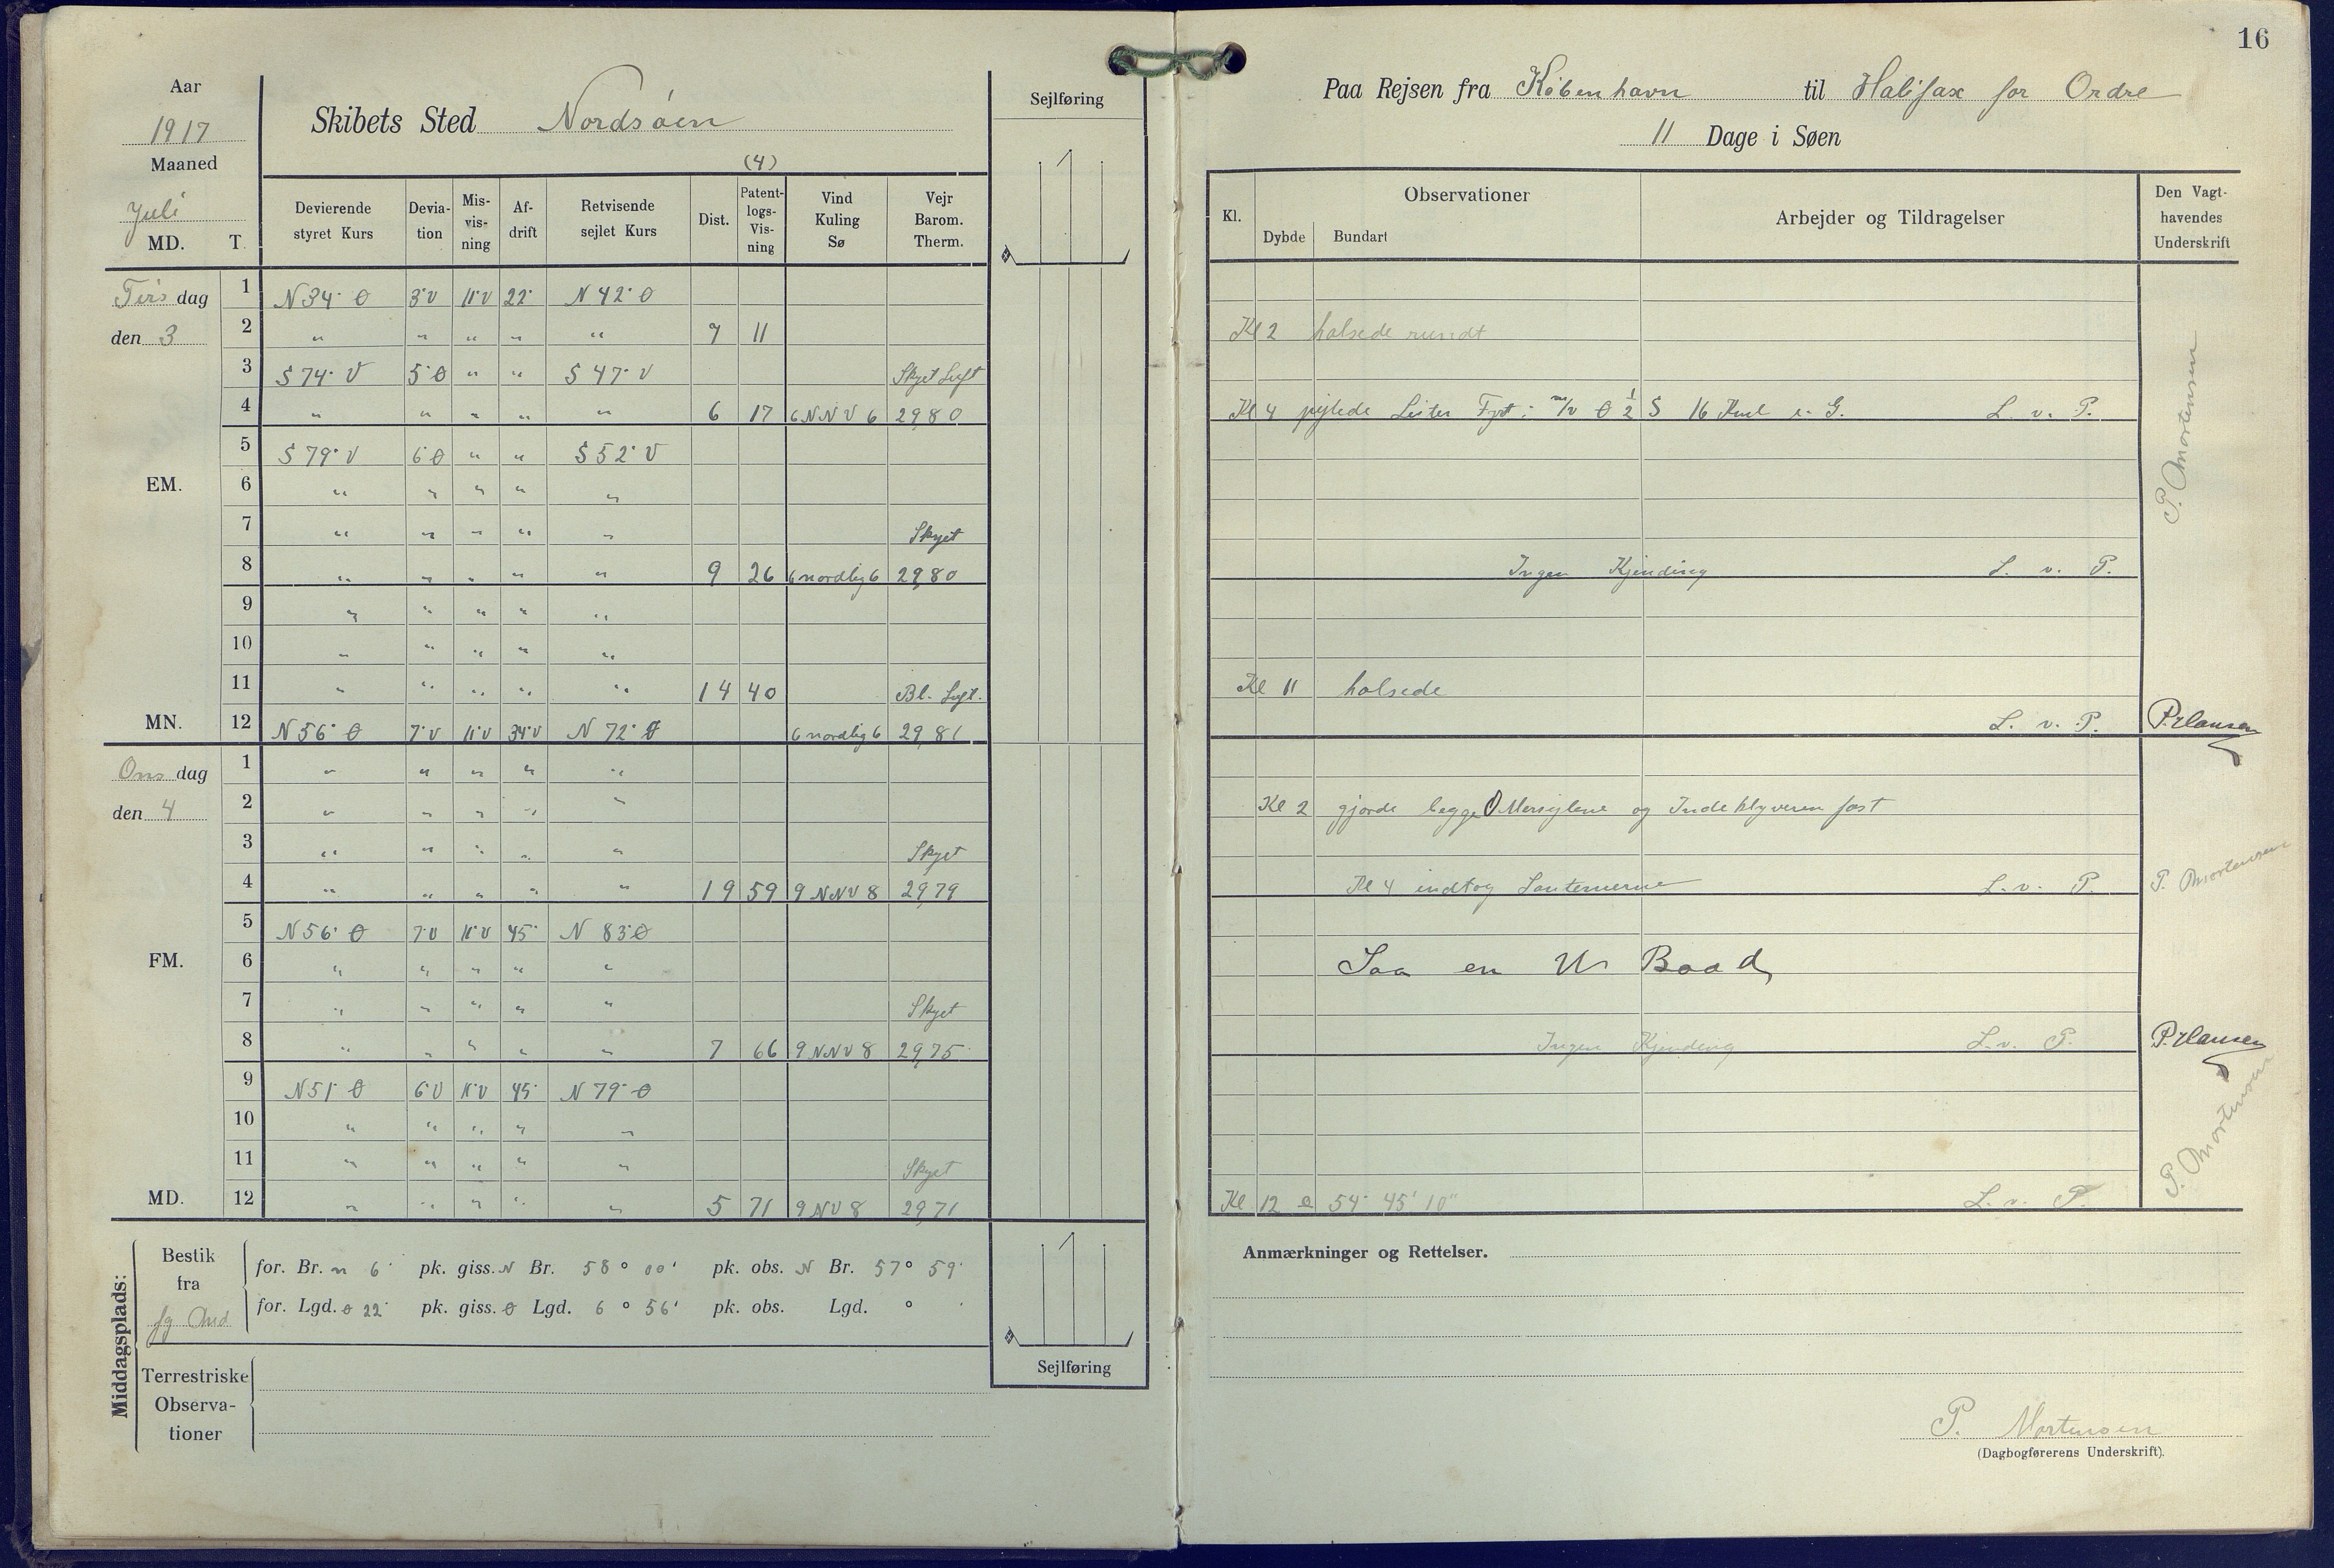 16
Aar
1917
Maaned
Juli
MD. T.
Skibets Sted Nordsøen
(4)
Sejlføring
Devierende styret Kurs | Deviation | Misvisning | Afdrift | Retvisende sejlet Kurs | Dist. | Patentlogs-Visning | Vind Kuling Sø | Vejr Barom. Therm.
Tirsdag den 3
1 N 34° Ø 3°V 11°V 22° N 42° Ø
2 " " " " " 7 11
3 S 74° V 5°Ø " " S 47° V Skyet Luft
4 " " " " " 6 17 6 NNV 6 29,80
5 S 79° V 6°Ø " " S 52° V
EM. 6 " " " " "
7 " " " " " Skyet
8 " " " " " 9 26 6 nordlig 6 29,80
9 " " " " "
10 " " " " "
11 " " " " " 14 40 Bl. Luft.
MN. 12 N 56° Ø 7°V 11°V 34°V N 72° Ø 6 nordlig 6 29,81
Onsdag den 4
1 " " " " "
2 " " " " "
3 " " " " " Skyet
4 " " " " " 19 59 9 NNV 8 29,79
5 N 56° Ø 7°V 11°V 45° N 83° Ø
FM. 6 " " " " "
7 " " " " " Skyet
8 " " " " " 7 66 9 NNV 8 29,75
9 N 51° Ø 6°V 11°V 45° N 79° Ø
10 " " " " "
11 " " " " " Skyet
MD. 12 " " " " " 5 71 9 NV 8 29,71
Middagsplads:
Bestik fra fg Md
for. Br. n 6' pk. giss. N Br. 58° 00' pk. obs. N Br. 57° 59'
for. Lgd. Ø 22' pk. giss. Ø Lgd. 6° 56' pk. obs. Lgd. ° '
Terrestriske Observationer
Sejlføring
Paa Rejsen fra København til Halifax for Ordre
11 Dage i Søen
Kl. | Observationer | Dybde | Bundart | Arbejder og Tildragelser | Den Vagthavendes Underskrift
Kl 2 halsede rundt
Kl 4 pejlede Lister Fyr i m/v Ø ½ S 16 Kml e. G. L. v. P.
P. Mortensen
Ingen Kjending L. v. P.
Kl 11 halsede
L. v. P. P. Hansen
Kl 2 gjorde begge Mersejlene og Indeklyveren fast
Kl 4 indtog Lanternerne L. v. P. P. Mortensen
Saa en U Baad,
Ingen Kjending L. v. P. P. Hansen
Kl 12 54° 45' 10" L. v. P. P. Mortensen
Anmærkninger og Rettelser.
P. Mortensen
(Dagbogførerens Underskrift).